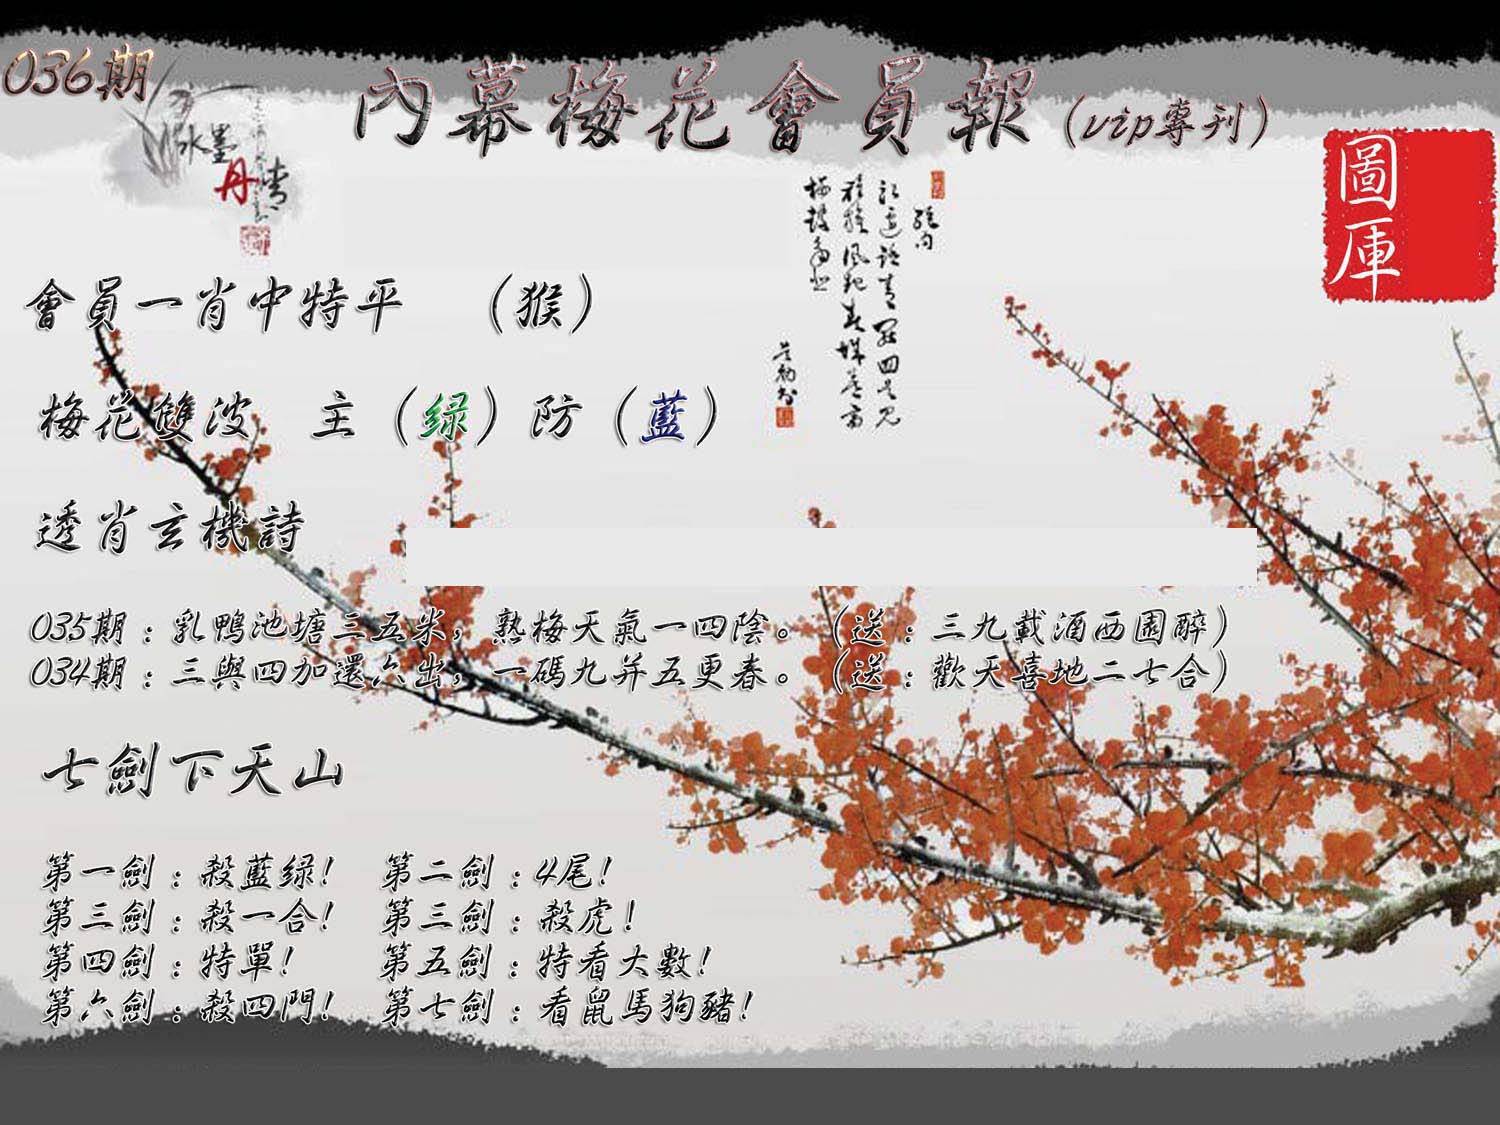 036期
內幕梅花會員報（vip專刊）
水墨
丹青
圖庫
會員一肖中特平　（猴）
梅花雙波　主（绿）防（藍）
透肖玄機詩
035期：乳鴨池塘三五米，熟梅天氣一四陰。（送：三九載酒西園醉）
034期：三與四加還六出，一碼九并五更春。（送：歡天喜地二七合）
七劍下天山
第一劍：殺藍绿！　第二劍：4尾！
第三劍：殺一合！　第三劍：殺虎！
第四劍：特單！　第五劍：特看大數！
第六劍：殺四門！　第七劍：看鼠馬狗豬！